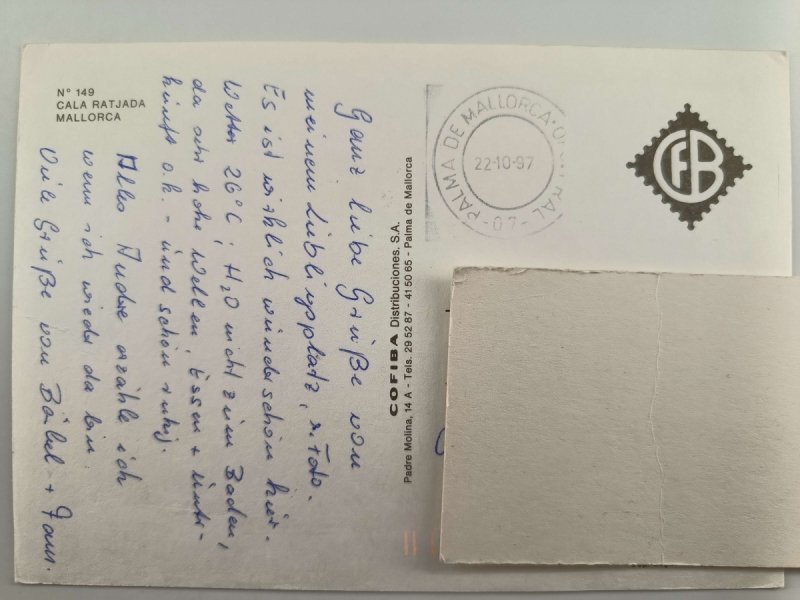 Nº 149
CALA RATJADA
MALLORCA
Ganz liebe Grüße von
meinem Lieblingsplatz, s. Foto.
Es ist wirklich wunderschön hier.
Wetter 26°C, H₂O nicht zum Baden,
da sehr hohe Wellen, Essen + Unter-
kunft o.k. - und schön ruhig.
Alles Andere erzähle ich
wenn ich wieder da bin.
Viele Grüße von Bärbel + Fam.
COFIBA Distribuciones, S.A.
Padre Molina, 14 A - Tels. 29 52 87 - 41 50 65 - Palma de Mallorca
PALMA DE MALLORCA
22-10-97
-07-
CFB